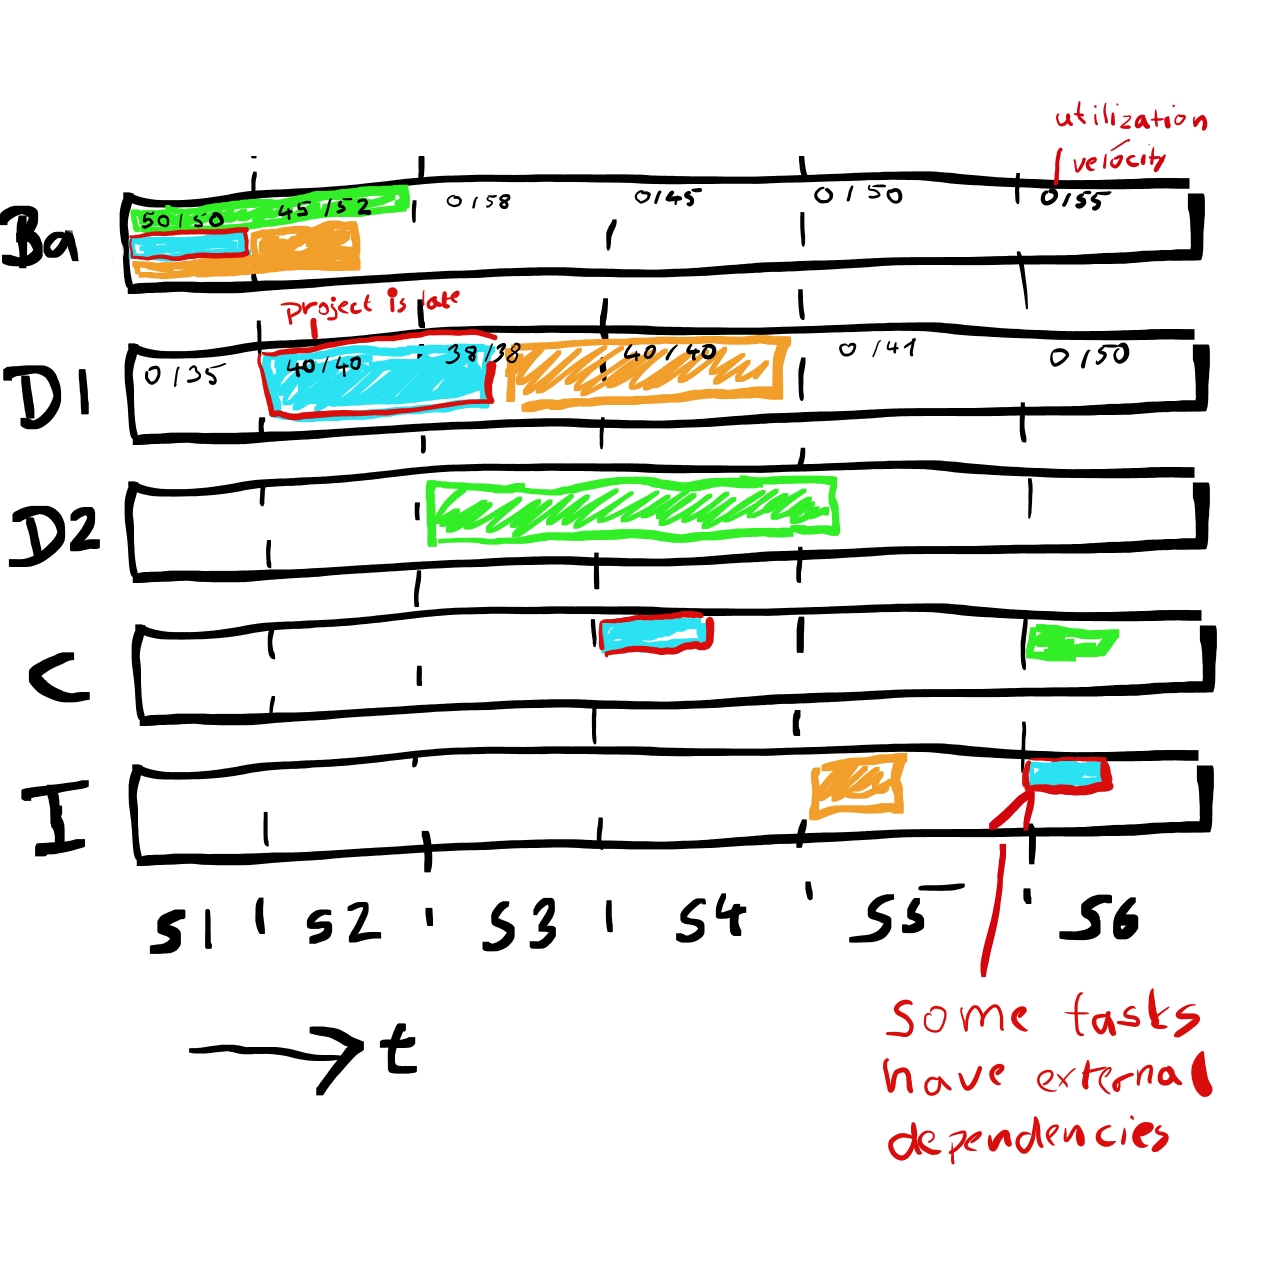 utilization
/ velocity
Ba 50/50 45/52 0/58 0/45 0/50 0/55
project is late
D1 0/35 40/40 38/38 40/40 0/41 0/50
D2
C
I
S1 S2 S3 S4 S5 S6
t
some tasks
have external
dependencies